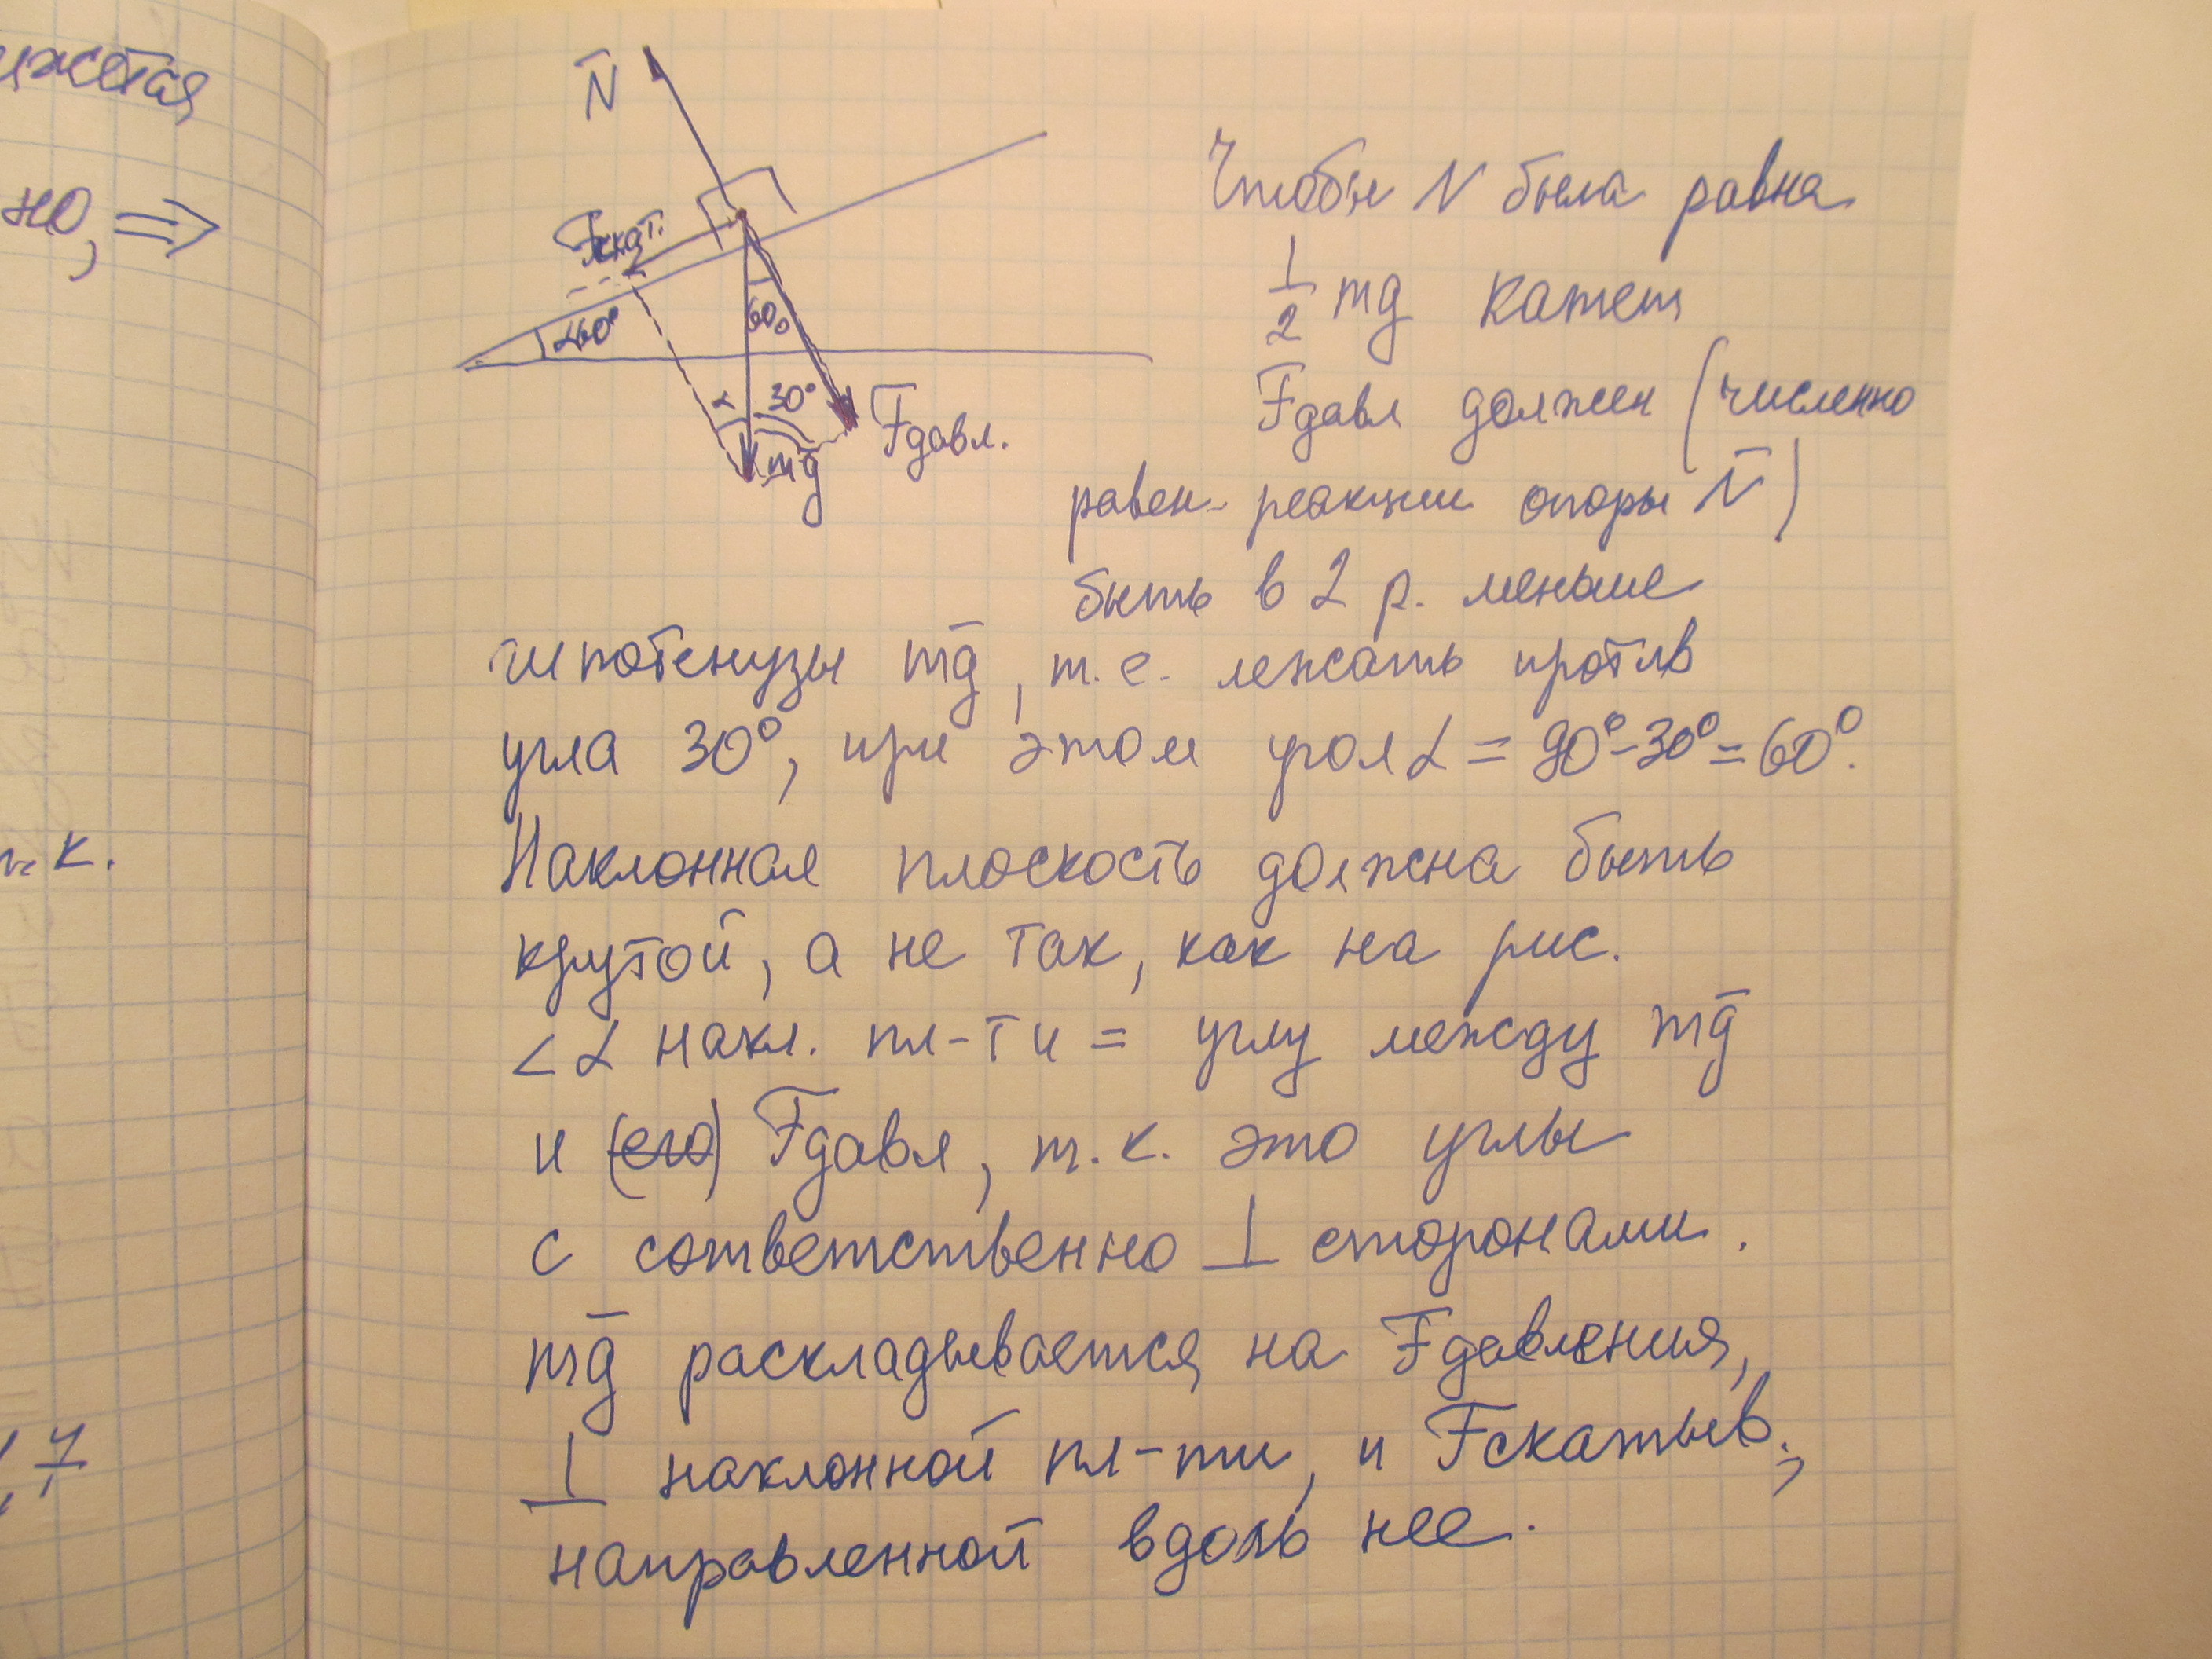 ижется
но, ⇒
т.к.
N̄
Fскат.
α60°
60°
α
30°
mḡ
F̄давл.
Чтобы N была равна
1/2 mg катет
F̄давл должен (численно
равен реакции опоры N̄)
быть в 2 р. меньше
гипотенузы mḡ, т.е. лежать против
угла 30°, при этом угол α = 90°-30°=60°.
Наклонная плоскость должна быть
крутой, а не так, как на рис.
<α накл. пл-ти = углу между mḡ
и (его) F̄давл, т.к. это углы
с сответственно ⊥ сторонами.
mḡ раскладывается на F̄давления,
⊥ наклонной пл-ти, и F̄скатыв.,
направленной вдоль нее.